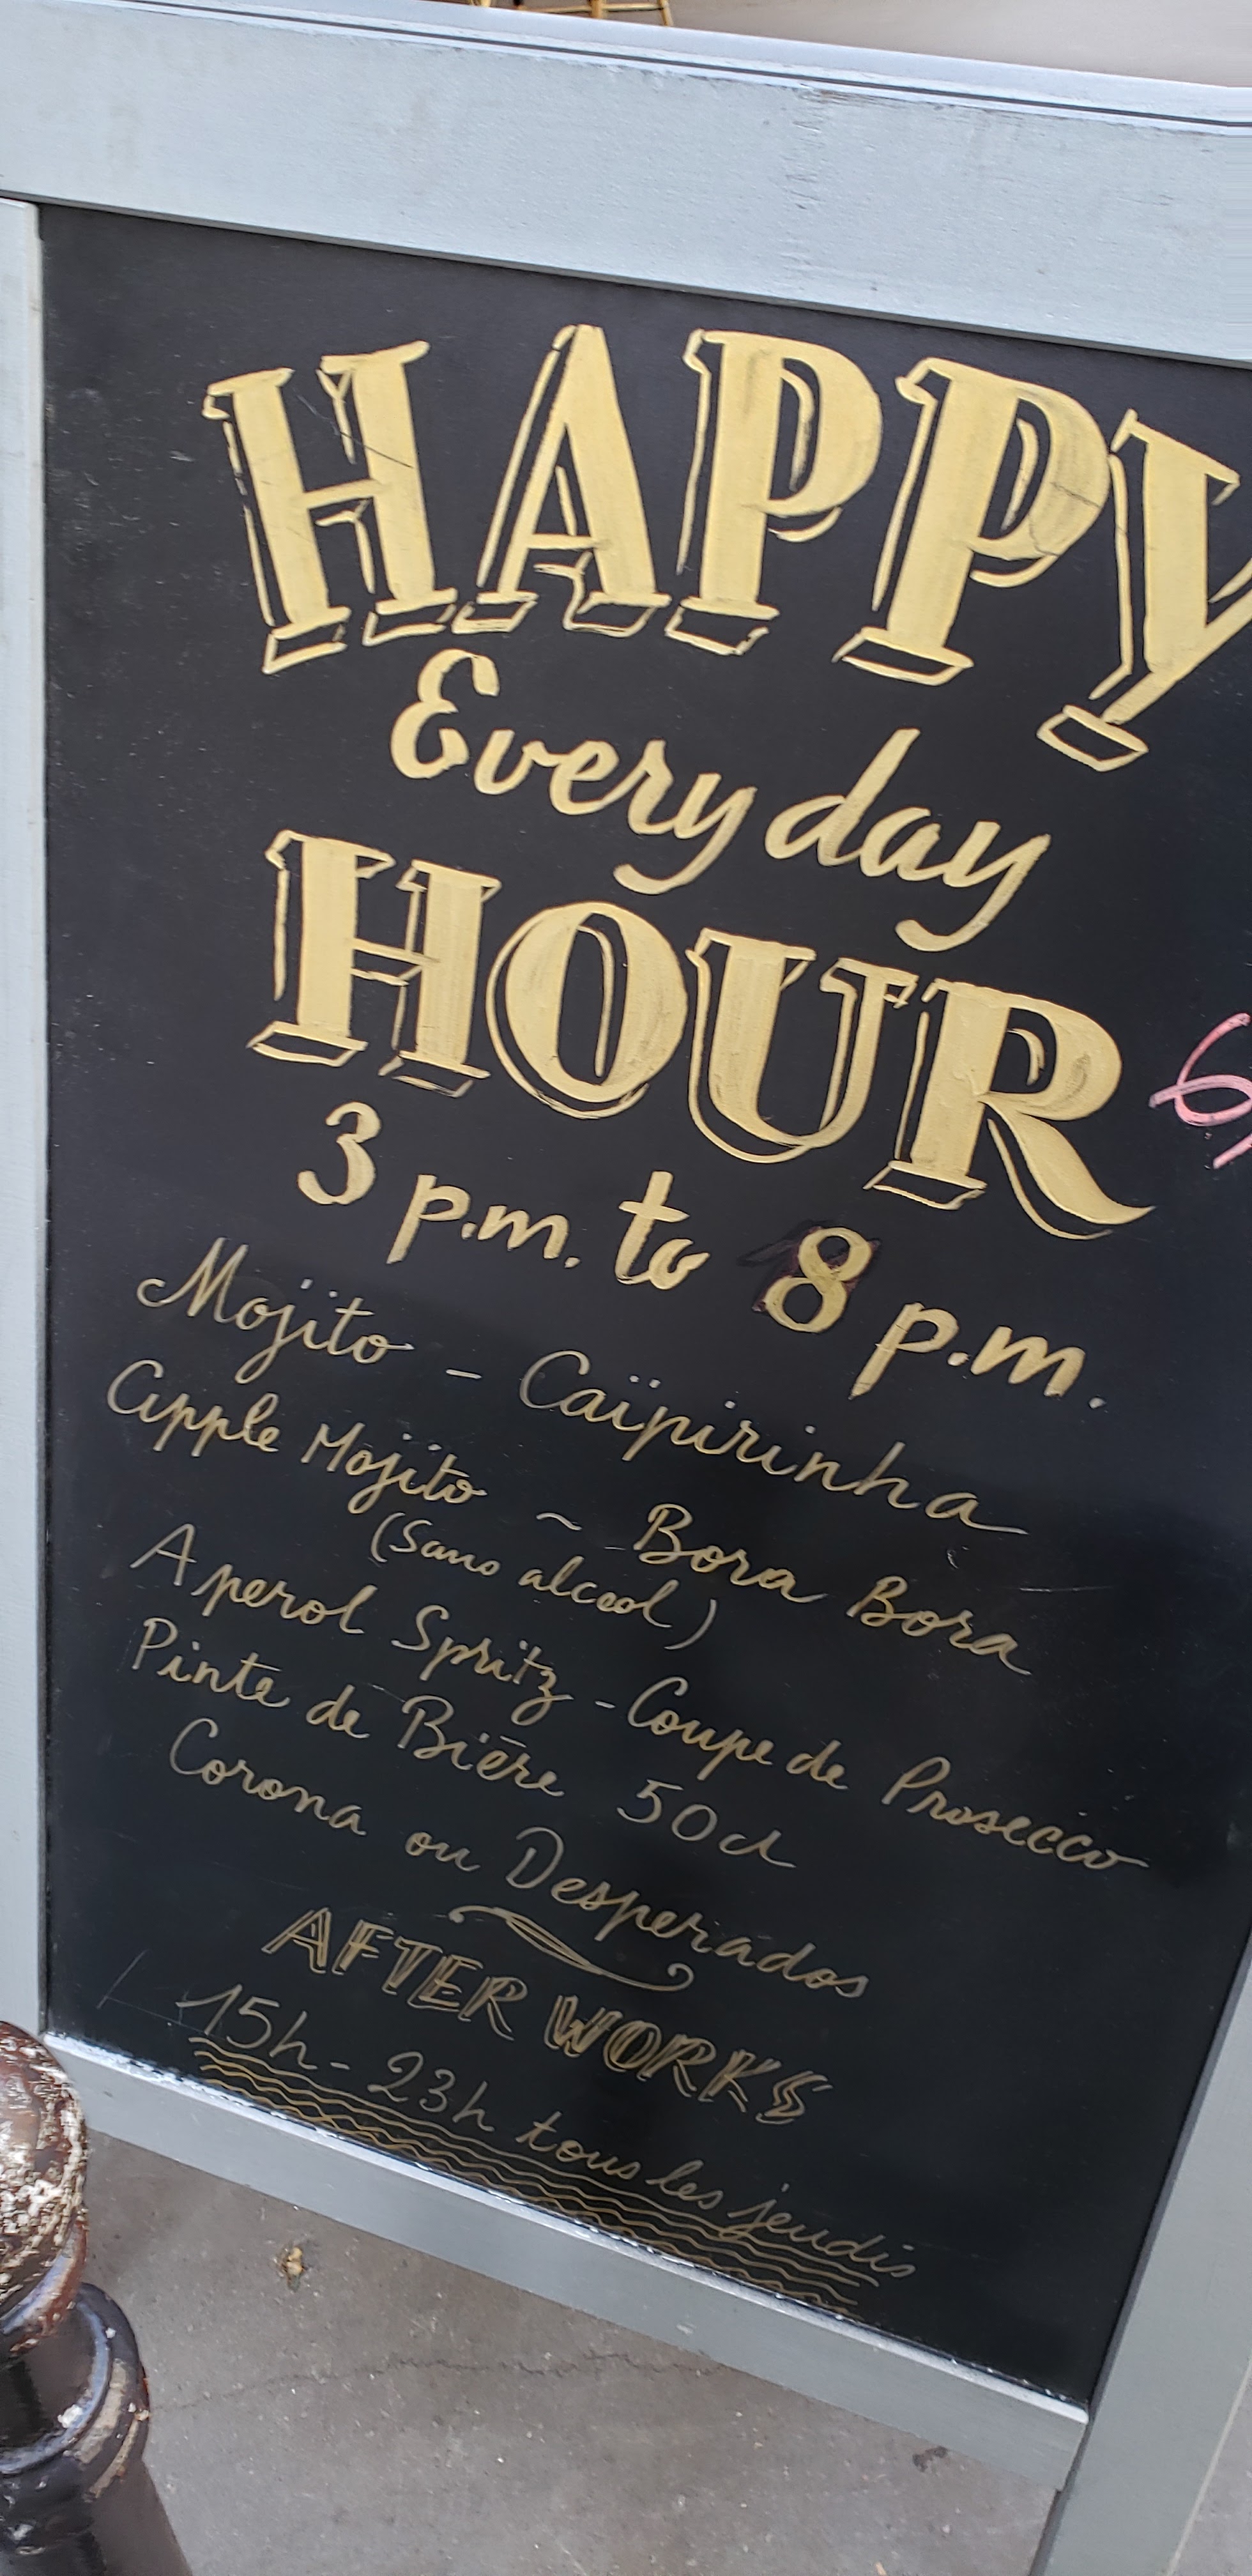 HAPPY
Everyday
HOUR
6,
3 p.m. to 8 p.m.
Mojito - Caïpirinha
Apple Mojito ~ Bora Bora
(Sans alcool)
Aperol Spritz - Coupe de Prosecco
Pinte de Bière 50cl
Corona ou Desperados
AFTER WORKS
15h - 23h tous les jeudis